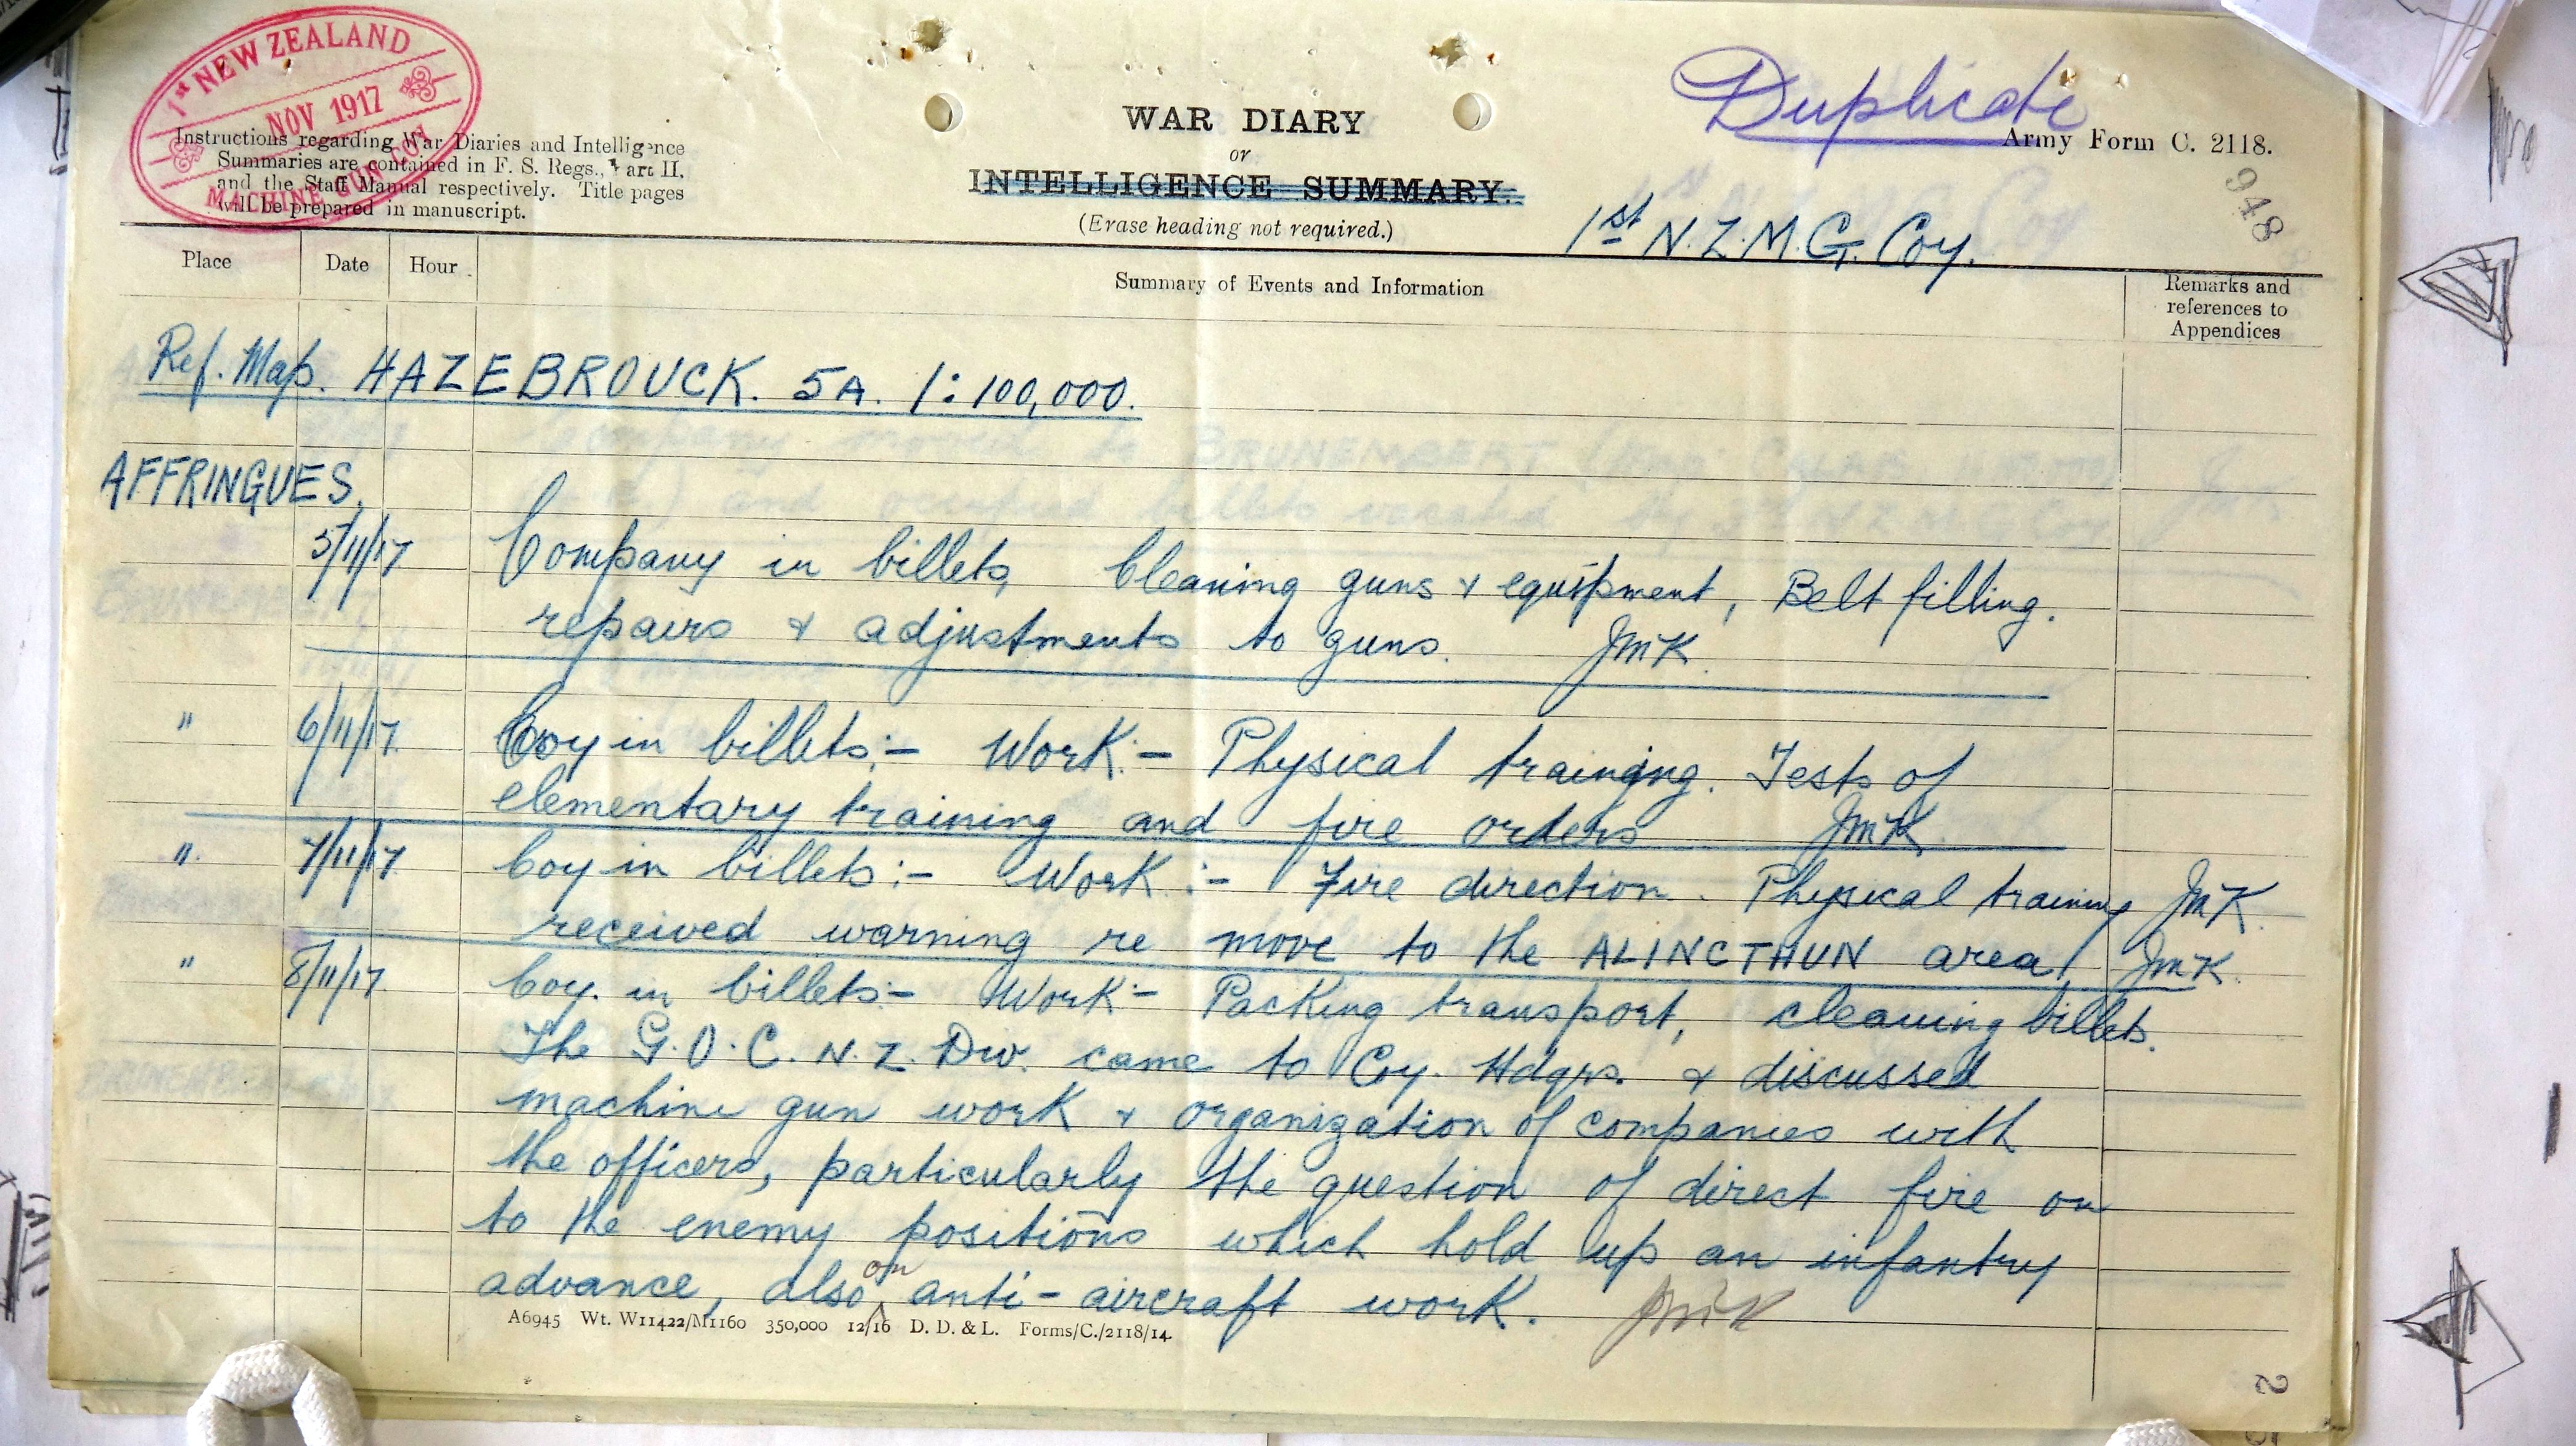 1st NEW ZEALAND
NOV 1917
MACHINE GUN COY
Instructions regarding War Diaries and Intelligence
Summaries are contained in F. S. Regs., Part II.
and the Staff Manual respectively. Title pages
will be prepared in manuscript.
WAR DIARY
or
INTELLIGENCE SUMMARY.
(Erase heading not required.)
Duplicate
Army Form C. 2118.
948
1st N.Z.M.G. Coy.
Place Date Hour Summary of Events and Information Remarks and
references to
Appendices
Ref. Map. HAZEBROUCK. 5A. 1:100,000.
AFFRINGUES.
5/11/17 Company in billets, Cleaning guns & equipment, Belt filling.
repairs & adjustments to guns. JMK
" 6/11/17 Coy in billets:- Work:- Physical training. Tests of
elementary training and fire orders JMK
" 7/11/17 Coy in billets:- Work:- Fire direction. Physical training JMK
received warning re move to the ALINCTHUN area. JMK
" 8/11/17 Coy. in billets:- Work:- Packing transport, cleaning billets.
The G.O.C. N.Z. Div. came to Coy. Hdqrs. & discussed
machine gun work & organization of companies with
the officers, particularly the question of direct fire on
to the enemy positions which hold up an infantry
advance, also on anti-aircraft work. JMK
A6945 Wt. W11422/M1160 350,000 12/16 D. D. & L. Forms/C./2118/14.
2